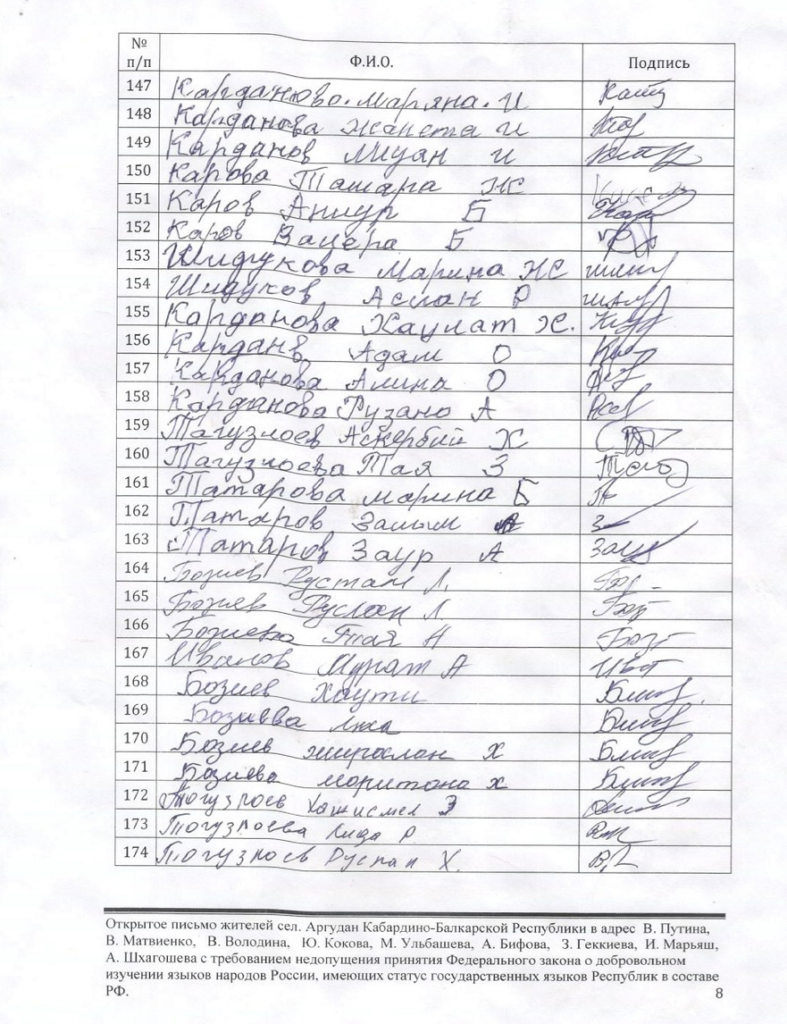 № п/п Ф.И.О. Подпись
147 Карданова Марьяна И
148 Карданова Жанета И
149 Карданов И
150 Карова Тамара Ж
151 Каров Аннур Б
152 Каров Б
153 Шидукова Марина ЖС
154 Шидуков Аслан Р
155 Карданова Хаулат Ж.
156 Адам О
157 Карданова Алина О
158 Карданова Рузана А
159 Тагузлоев Аскербий Х
160 Тагузлоева Тая З
161 Татарова Марина Б
162 Татаров Залым А
163 Татаров Заур А Заур
164 Бозиев Рустам Л.
165 Бозиев Руслан Л.
166 Бозиева Тая Н
167 Иванов Мурат А
168 Бозиев Хаути
169 Бозиева
170 Бозиев Х
171 Бозиева Х
172 Тогузлоев З
173 Тогузлоева Лиза Р
174 Тогузлоев Руслан Х.
Открытое письмо жителей сел. Аргудан Кабардино-Балкарской Республики в адрес В. Путина,
В. Матвиенко, В. Володина, Ю. Кокова, М. Ульбашева, А. Бифова, З. Геккиева, И. Марьяш,
А. Шхагошева с требованием недопущения принятия Федерального закона о добровольном
изучении языков народов России, имеющих статус государственных языков Республик в составе
РФ. 8